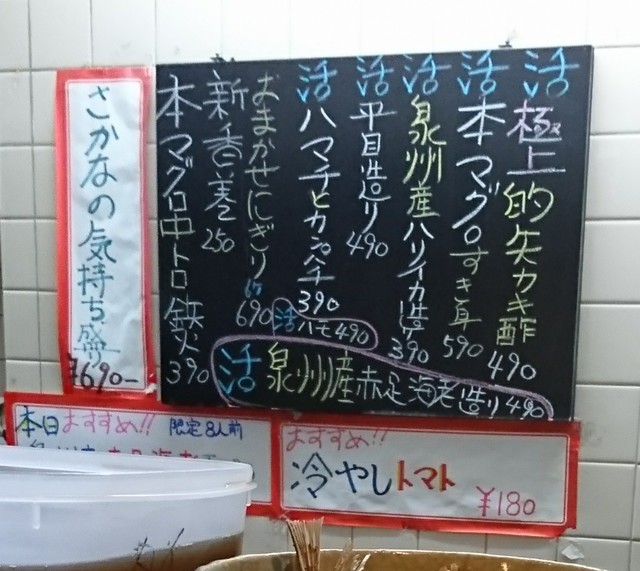 活 極上的矢カキ酢 490
活 本マグロすき身 590
活 泉州産ハリイカ造り 390
活 平目造り 490
活 ハマチとカンパチ 390
活 ハモ 490
おまかせにぎり 690
新香巻 250
本マグロ中トロ鉄火 390
活 泉州産赤足海老造り 490
さかなの気持ち盛り
690-
本日おすすめ!! 限定8人前
おすすめ!!
冷やしトマト
¥180